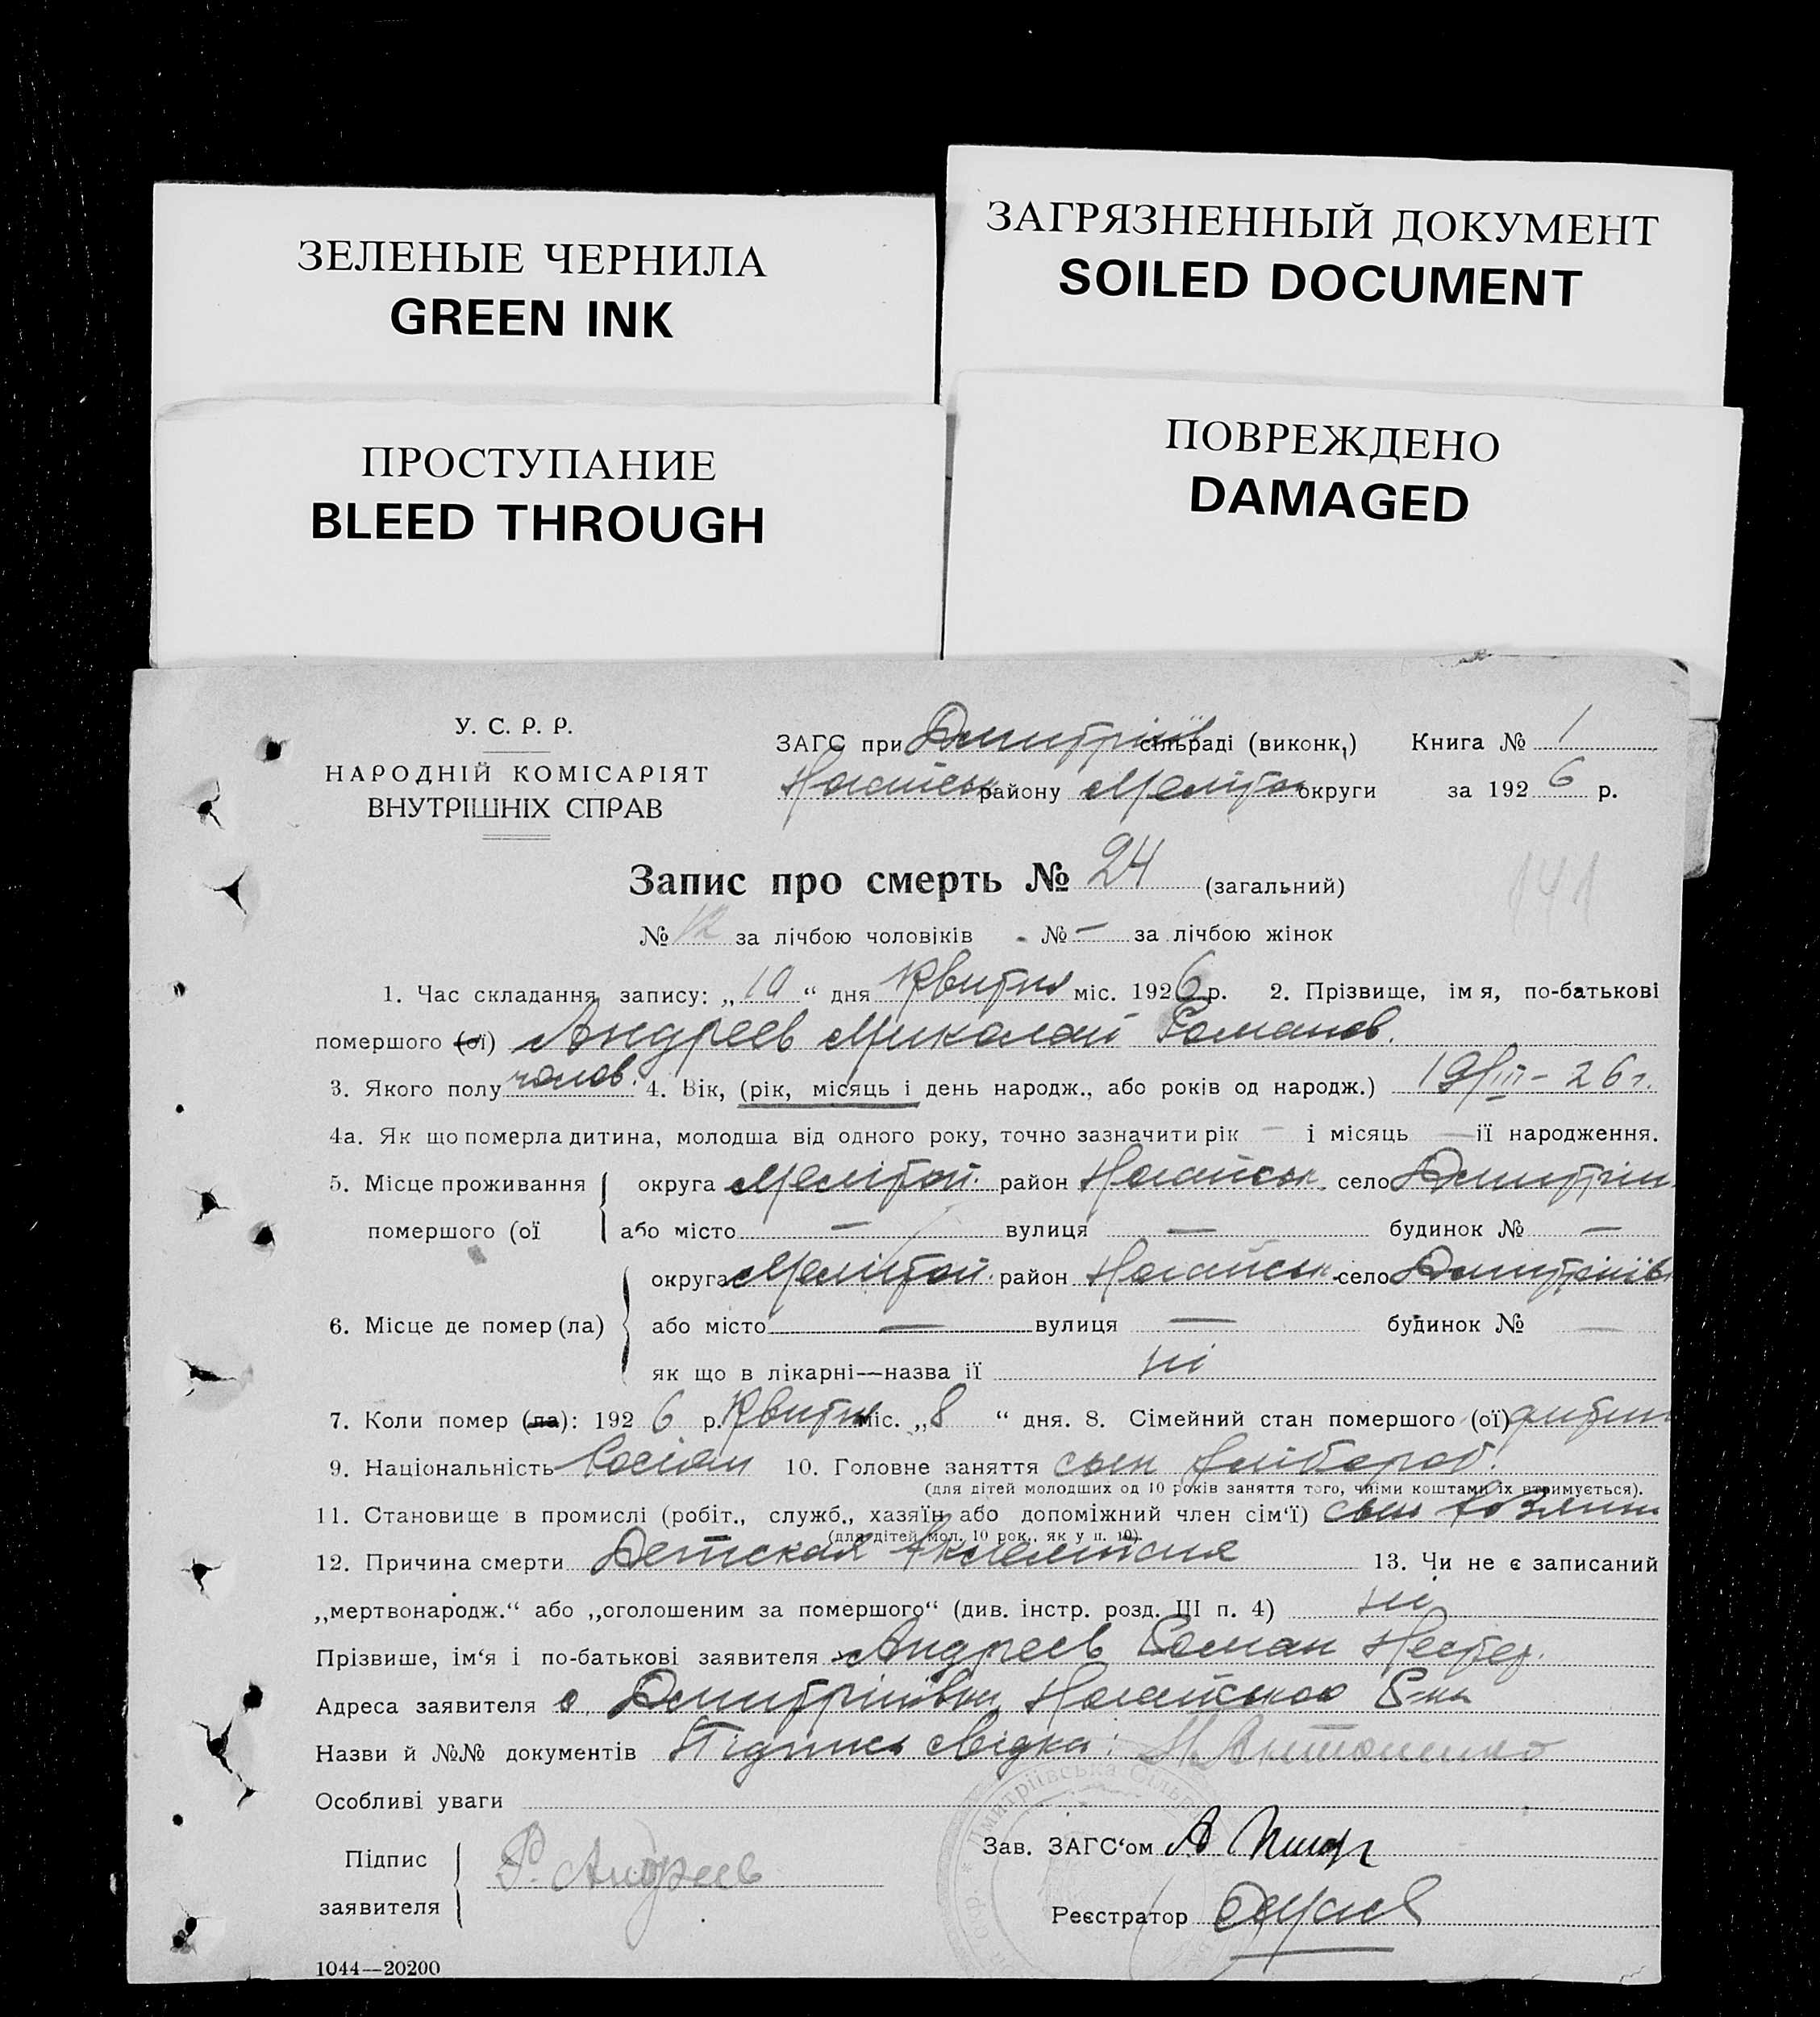 ЗЕЛЕНЫЕ ЧЕРНИЛА
GREEN INK
ЗАГРЯЗНЕННЫЙ ДОКУМЕНТ
SOILED DOCUMENT
ПРОСТУПАНИЕ
BLEED THROUGH
ПОВРЕЖДЕНО
DAMAGED
У. С. Р. Р.
НАРОДНІЙ КОМІСАРІЯТ
ВНУТРІШНІХ СПРАВ
ЗАГС при Дмитріїв сільраді (виконк.) Книга № 1
Ногайськ району Мелітоп округи за 1926 р.
Запис про смерть № 24 (загальний)
141
№ 12 за лічбою чоловіків № — за лічбою жінок
1. Час складання запису: „10“ дня Квитня міс. 1926 р. 2. Прізвище, імя, по-батькові
помершого (ої) Андреев Миколай Романов.
3. Якого полу чолов. 4. Вік, (рік, місяць і день народж., або років од народж.) 19/III-26 г.
4а. Як що померла дитина, молодша від одного року, точно зазначити рік — і місяць — ії народження.
5. Місце проживання
помершого (ої
округа Мелітоп. район Ногайськ. село Дмитрів
або місто — вулиця — будинок № —
6. Місце де помер (ла)
округа Мелітоп. район Ногайськ. село Дмитріїв
або місто — вулиця — будинок № —
як що в лікарні—назва ії ні
7. Коли помер (ла): 1926 р. Квитня міс. „8“ дня. 8. Сімейний стан помершого (ої) дитин
9. Національність Росіян 10. Головне заняття сын хлібороб.
(для дітей молодших од 10 років заняття того, чиїми коштами їх втримується).
11. Становище в промислі (робіт., служб., хазяїн або допоміжний член сім'ї) сын хозяин
(для дітей мол. 10 рок., як у п. 10).
12. Причина смерти Детская 13. Чи не є записаний
„мертвонародж.“ або „оголошеним за помершого“ (див. інстр. розд. III п. 4) ні
Прізвише, ім'я і по-батькові заявителя Андреев Роман Нестер.
Адреса заявителя с. Дмитріївки Ногайського Р-на
Назви й №№ документів Підпись свідка: Н Антоненко
Особливі уваги
Підпис
заявителя
Р. Андреев
Дмитріївська Сільр
Зав. ЗАГС'ом
Реєстратор
1044—20200